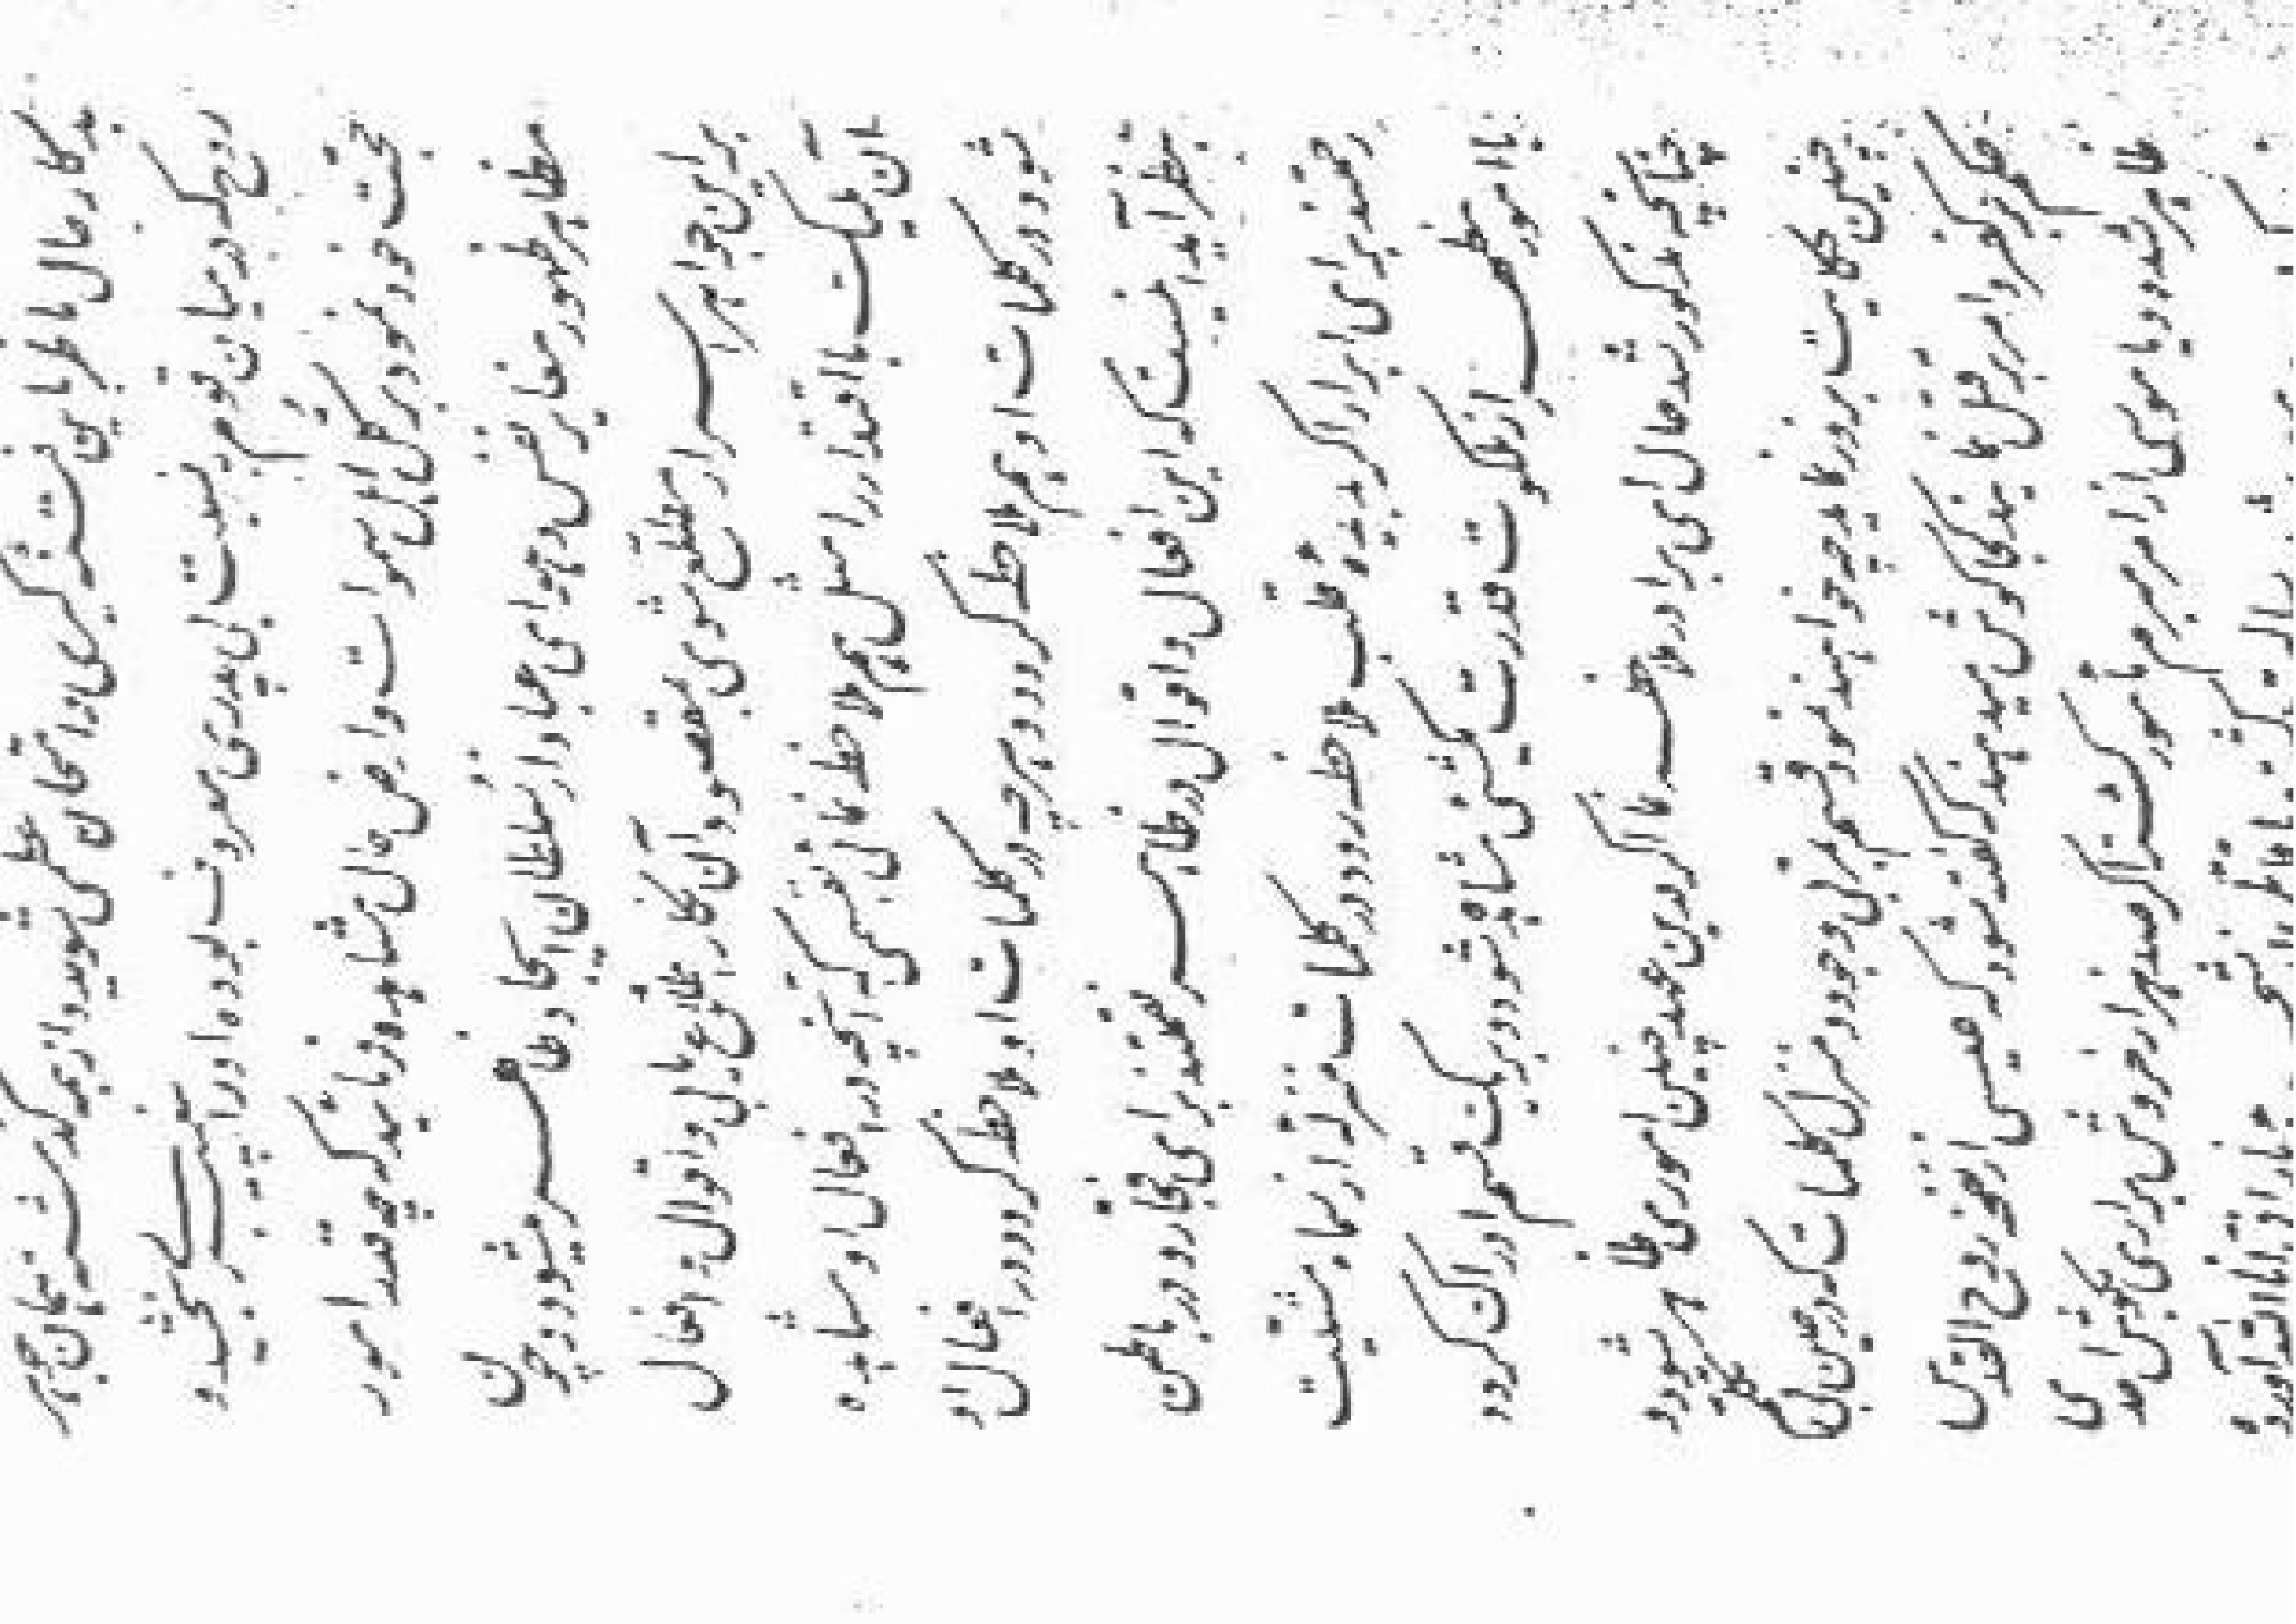 دیگر در حال ناظر باین فتنه کبری و امتحان عظمی شوید و از همه گذشته همان جوهر
روح که در میان قوم به نسبت بی پدری معروف بوده او را پیغمبری بخشید و
حجت خود نمود بر کل اهل سموات و ارض حال مشاهده فرمائید که چه قدر امور
مظاهر ظهور مغایر نفس و هوای عباد از سلطان ایجاد ظاهر میشود و چون
بر این جواهر اسرار مطلع شوی بمقصود آن نگار اطلاع یابی و اقوال و افعال
آن ملیک با اقتدار را مثل هم ملاحظه نمائی بقسمی که آنچه در افعال او مشاهده
شود در کلمات او هم ملاحظه گردد و هر چه در کلمات او ملاحظه گردد در افعال او
بنظر آید اینست که این افعال و اقوال در ظاهر نقمتند برای فجار و در باطن
رحمتند برای ابرار اگر بدیده قلب ملاحظه رود در کلمات منزله از سماء مشیت
با امور مظهره از ملکوت قدرت یکشئ مشاهده شود و بر یک قسم ادراک گردد
چنانچه مذکور شد حال ای برادر ملاحظه نما اگر در این عهد چنین اموری ظاهر شود و
چنین حکایت بروز نماید چه خواهند نمود قسم بمربی وجود و منزل کلمات که در حین بی تکلم
حکم بر کفر و امر بر قتل نمایند کجا گوش میدهند که گفته شود که عیسی از نفخه روح القدس
ظاهر شده و یا موسی از امر مبرم مأمور گشته اگر صد هزار خروش براری بگوش احدی